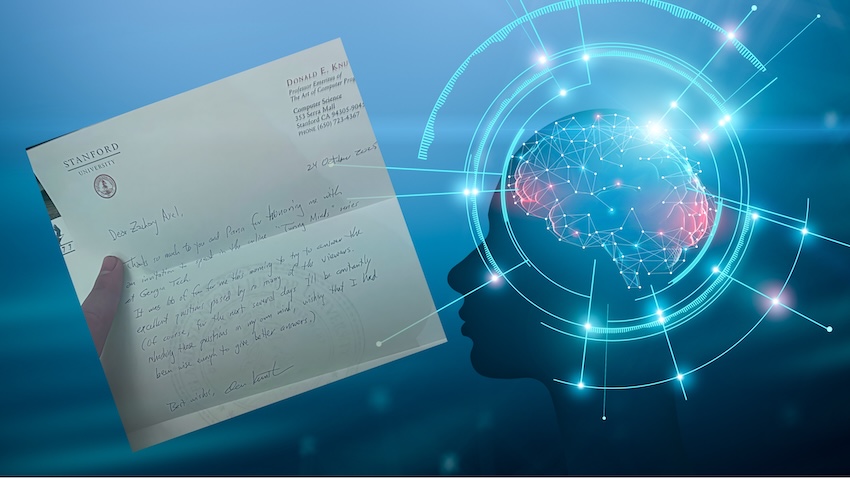 STANFORD
UNIVERSITY
DONALD E. KN
Professor Emeritus of
The Art of Computer Prog
Computer Science
353 Serra Mall
Stanford CA 94305-904
PHONE (650) 723-4367
24 October 2025
Dear
Thanks so much to you and for honoring me with
an invitation to speak in the online Turing Minds series
at Georgia Tech.
It was lots of fun for me this morning to try to answer the
excellent questions posed by so many of the viewers.
(Of course, for the next several days I'll be constantly
these questions in my own mind, wishing that I had
been wise enough to give better answers.)
Best wishes, Don Knuth